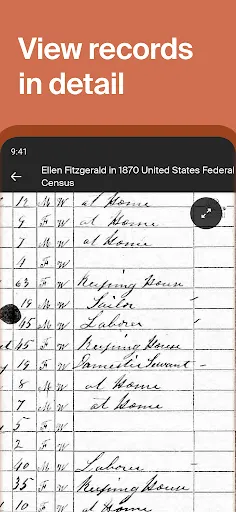 View records
in detail
9:41
Ellen Fitzgerald in 1870 United States Federal
Census
12 M W at Home
9 F W at Home
7 M W at Home
4 F W
63 F W Keeping House
19 M W Sailor
45 M W Laborer
45 F W Keeping House
19 F W Domestic Servant
8 M W at Home
7 M W at Home
5 F W
2 F W
40 M W Laborer
35 F W Keeping House
10 F W at Home